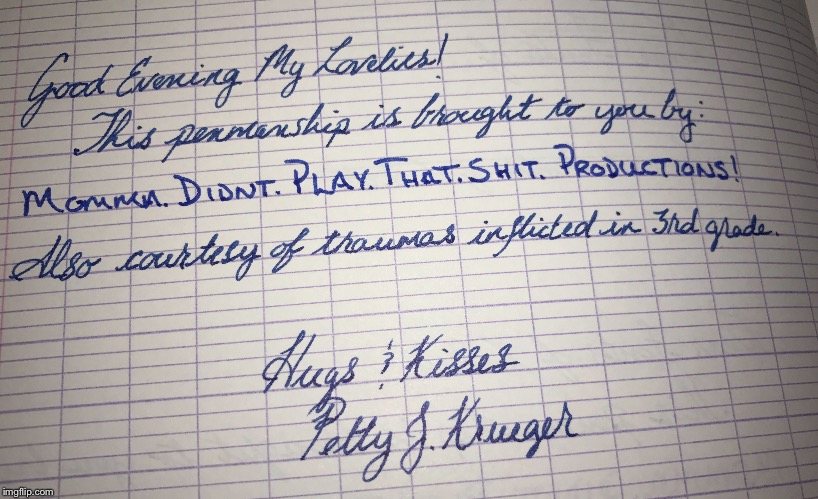 Good Evening My Lovelies!
This penmanship is brought to you by:
MOMMA. DIDNT. PLAY. THAT. SHIT. PRODUCTIONS!
Also courtesy of traumas inflicted in 3rd grade.
Hugs & Kisses
Petty J. Krueger
imgflip.com